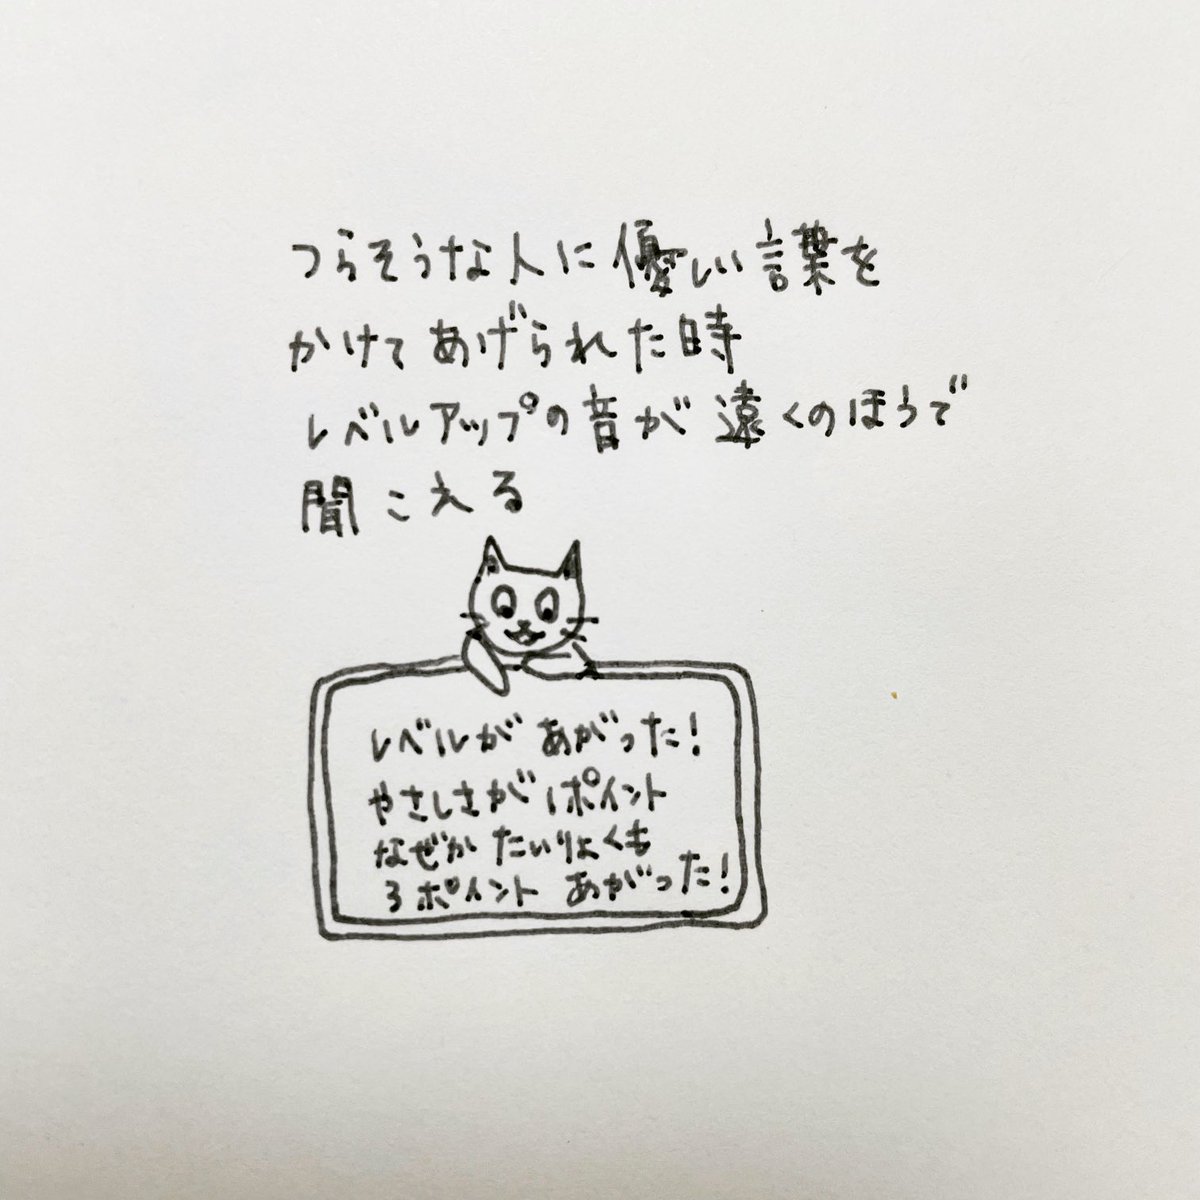 つらそうな人に優しい言葉を
かけてあげられた時
レベルアップの音が遠くのほうで
聞こえる
レベルがあがった!
やさしさが1ポイント
なぜかたいりょくも
3ポイントあがった!